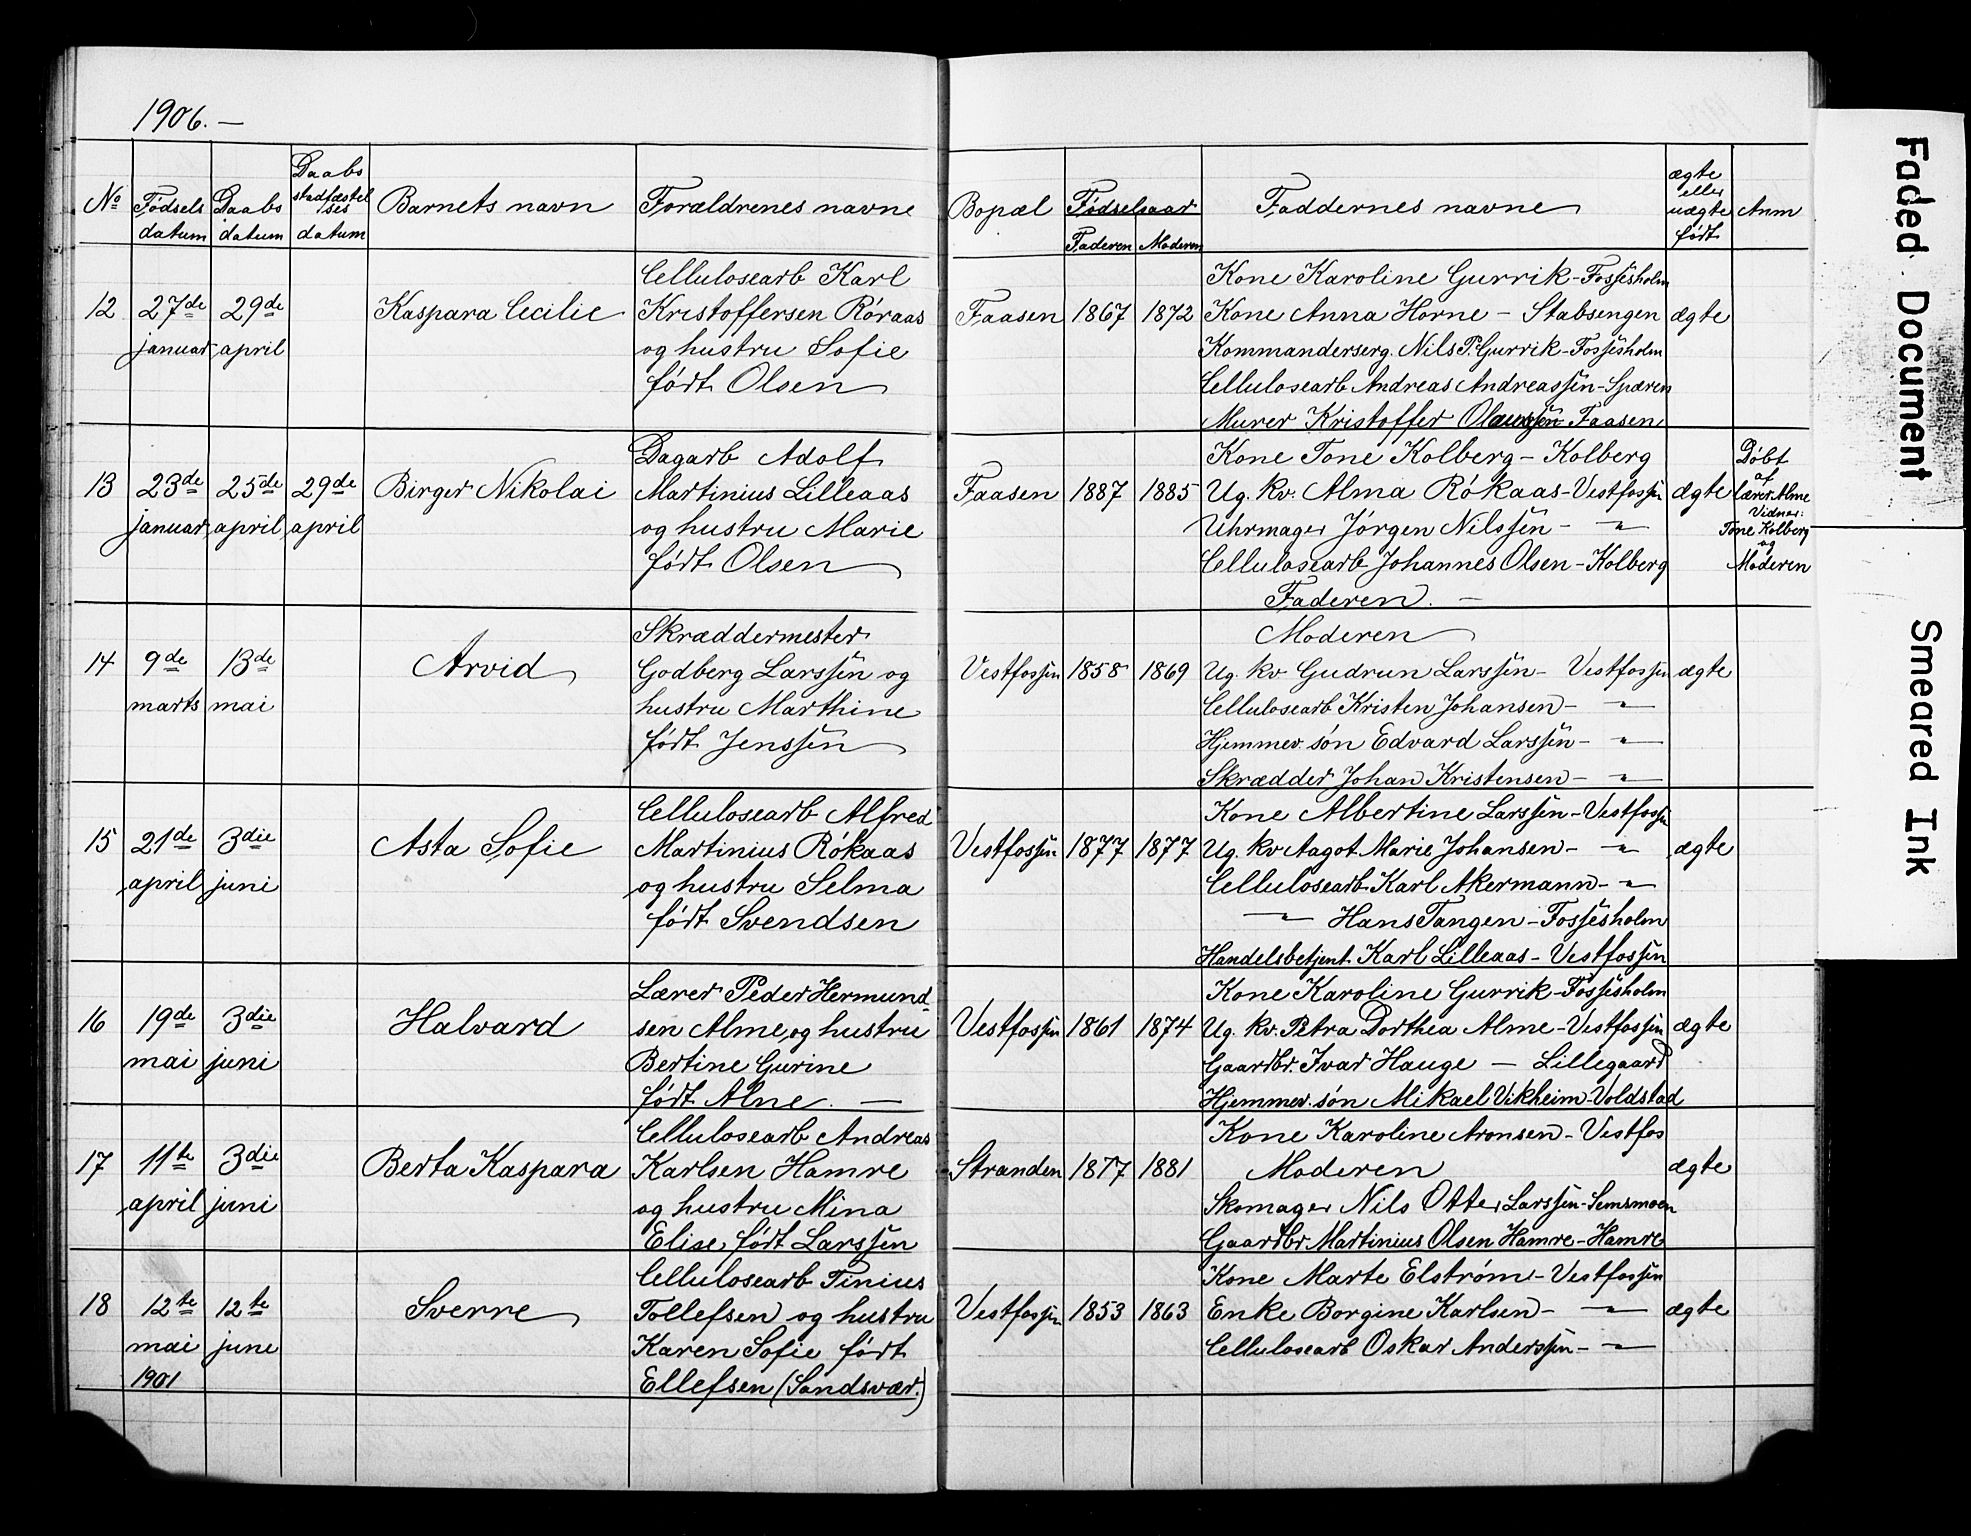 1906. —
No Fødsels datum Daabs datum Daabs stadfæstel ses datum Barnets navn Forældrenes navne Bopæl Fødselsaar Faderen Moderen Faddernes navne ægte eller uægte født Anm
12 27de januar 29de april Kaspara Cecilie
Cellulosearb Karl
Kristoffersen Röraas
og hustru Sofie
født Olsen
Faasen 1867 1872
Kone Karoline Gurrik - Fossesholm
Kone Anna Horne - Stabsengen
Kommanderserg. Nils P. Gurrik - Fossesholm
Cellulosearb Andreas Andreassen - Spæren
Murer Kristoffer Olaussen Faasen
ægte
13 23de januar 25de april 29de april Birger Nikolai
Dagarb Adolf
Martinius Lilleaas
og hustru Marie
født Olsen
Faasen 1887 1885
Kone Tone Kolberg - Kolberg
Ug. kv. Alma Rökaas - Vestfossen
Uhrmager Jørgen Nilssen - "
Cellulosearb Johannes Olsen - Kolberg
Faderen. —
ægte
Døbt
af
lærer Alme
Vidner:
Tone Kolberg
og
Moderen
14 9de marts 13de mai Arvid
Skræddermester
Godberg Larssen og
hustru Marthine
født Jenssen
Vestfossen 1858 1869
Moderen
Ug. kv Gudrun Larssen - Vestfossen
Cellulosearb Kristen Johansen - "
Hjemmev. søn Edvard Larssen - "
Skrædder Johan Kristensen - "
ægte
15 21de april 3die juni Asta Sofie
Cellulosearb Alfred
Martinius Rökaas
og hustru Selma
født Svendsen
Vestfossen 1877 1877
Kone Albertine Larssen - Vestfossen
Ug. kv Aagot Marie Johansen - "
Cellulosearb Karl Akermann - "
" Hans Tangen - Fossesholm
Handelsbetjent Karl Lilleaas - Vestfossen
ægte
16 19de mai 3die juni Halvard
Lærer Peder Hermund-
sen Alme, og hustru
Bertine Gurine
født Alne. —
Vestfossen 1861 1874
Kone Karoline Gurrik - Fossesholm
Ug. kv. Petra Dorthea Alme - Vestfossen
Gaardbr. Ivar Hauge - Lillegaard
Hjemmev. søn Mikael Vikheim - Voldstad
ægte
17 11te april 3die juni Berta Kaspara
Cellulosearb Andreas
Karlsen Hamre
og hustru Mina
Elise, født Larssen
Stranden 1877 1881
Kone Karoline Aronsen - Vestfos
Moderen
Skomager Nils Otter Larssen - Semsmoen
Gaardbr Martinius Olsen Hamre - Hamre
ægte
18 12te mai 1901 12te june Sverre
Cellulosearb Tinius
Tollefsen og hustru
Karen Sofie født
Ellefsen (Sandsvær.)
Vestfossen 1853 1863
Kone Marte Elstrøm - Vestfossen
Enke Borgine Karlsen - "
Cellulosearb Oskar Anderssen - "
ægte
Faded Document
Smeared Ink